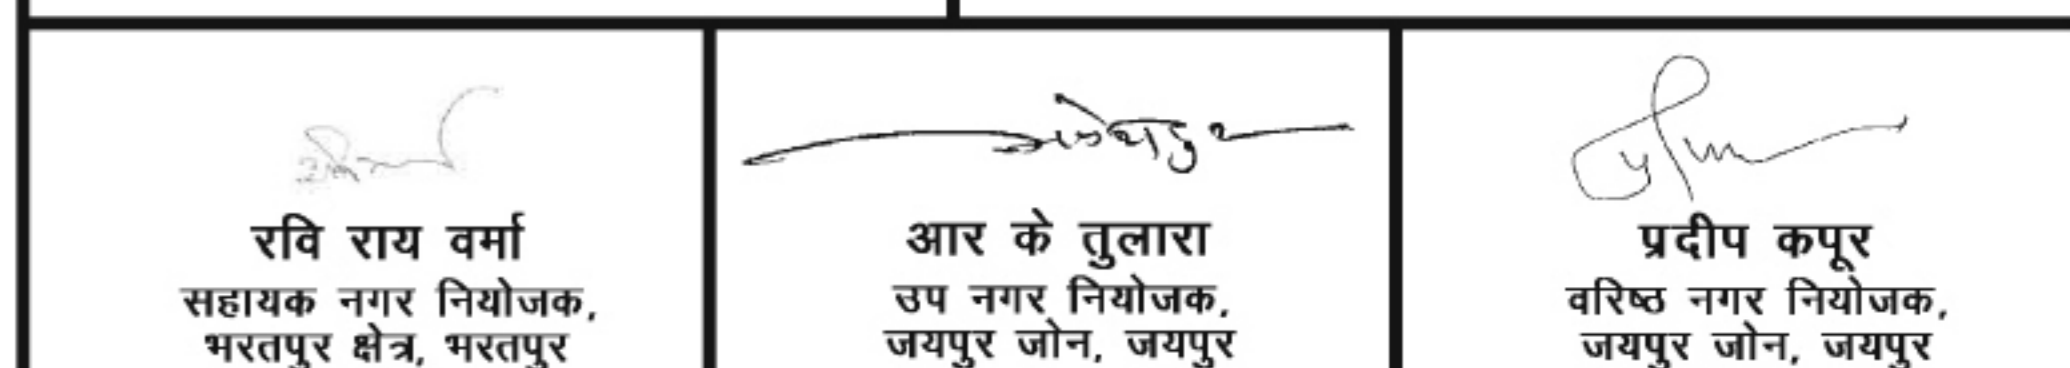 रवि राय वर्मा
सहायक नगर नियोजक,
भरतपुर क्षेत्र, भरतपुर
आर के तुलारा
उप नगर नियोजक,
जयपुर जोन, जयपुर
प्रदीप कपूर
वरिष्ठ नगर नियोजक,
जयपुर जोन, जयपुर